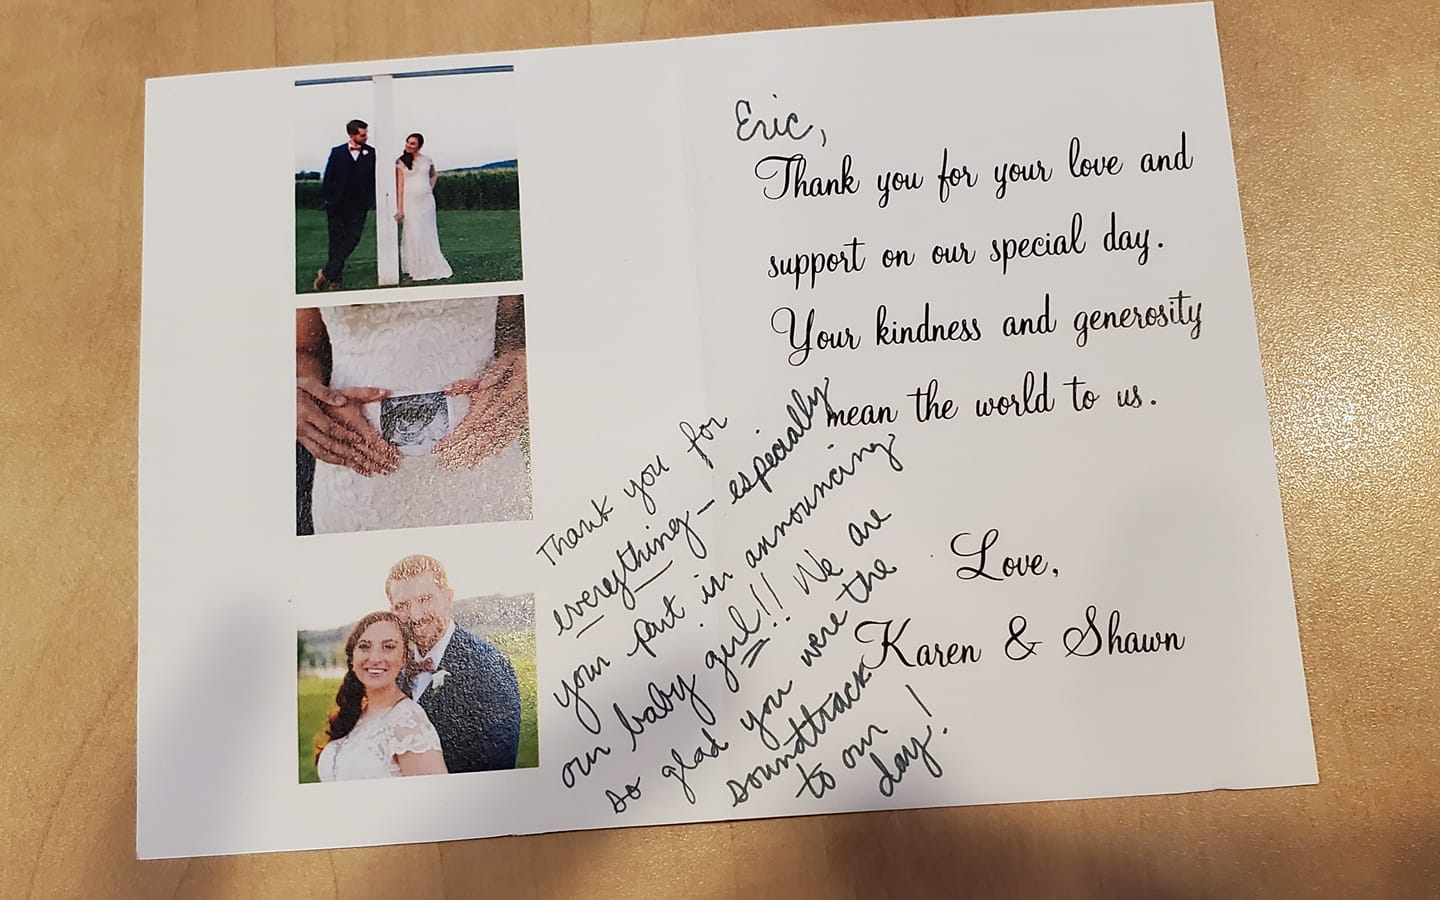 Eric,
Thank you for your love and
support on our special day.
Your kindness and generosity
mean the world to us.
Love,
Karen & Shawn
Thank you for
everything - especially
your part in announcing
our baby girl!! We are
so glad you were the
soundtrack
to our
day!